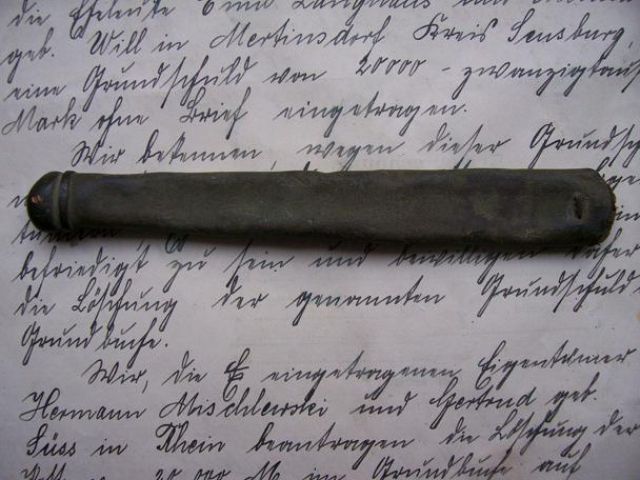 die Eheleute Emil Langhans und
geb. Will in Mertinsdorf Kreis Sensburg,
eine Grundschuld von 20000 - zwanzigtaus
Mark ohne Brief eingetragen.
Wir bekennen, wegen dieser Grundsch
befriedigt zu sein und bewilligen daher
die Löschung der genannten Grundschuld
Grundbuche.
Wir, die E eingetragenen Eigentümer
Hermann Mischlewski und Gertrud geb.
Süss in Rhein beantragen die Löschung der
20 000 M im Grundbuche auf